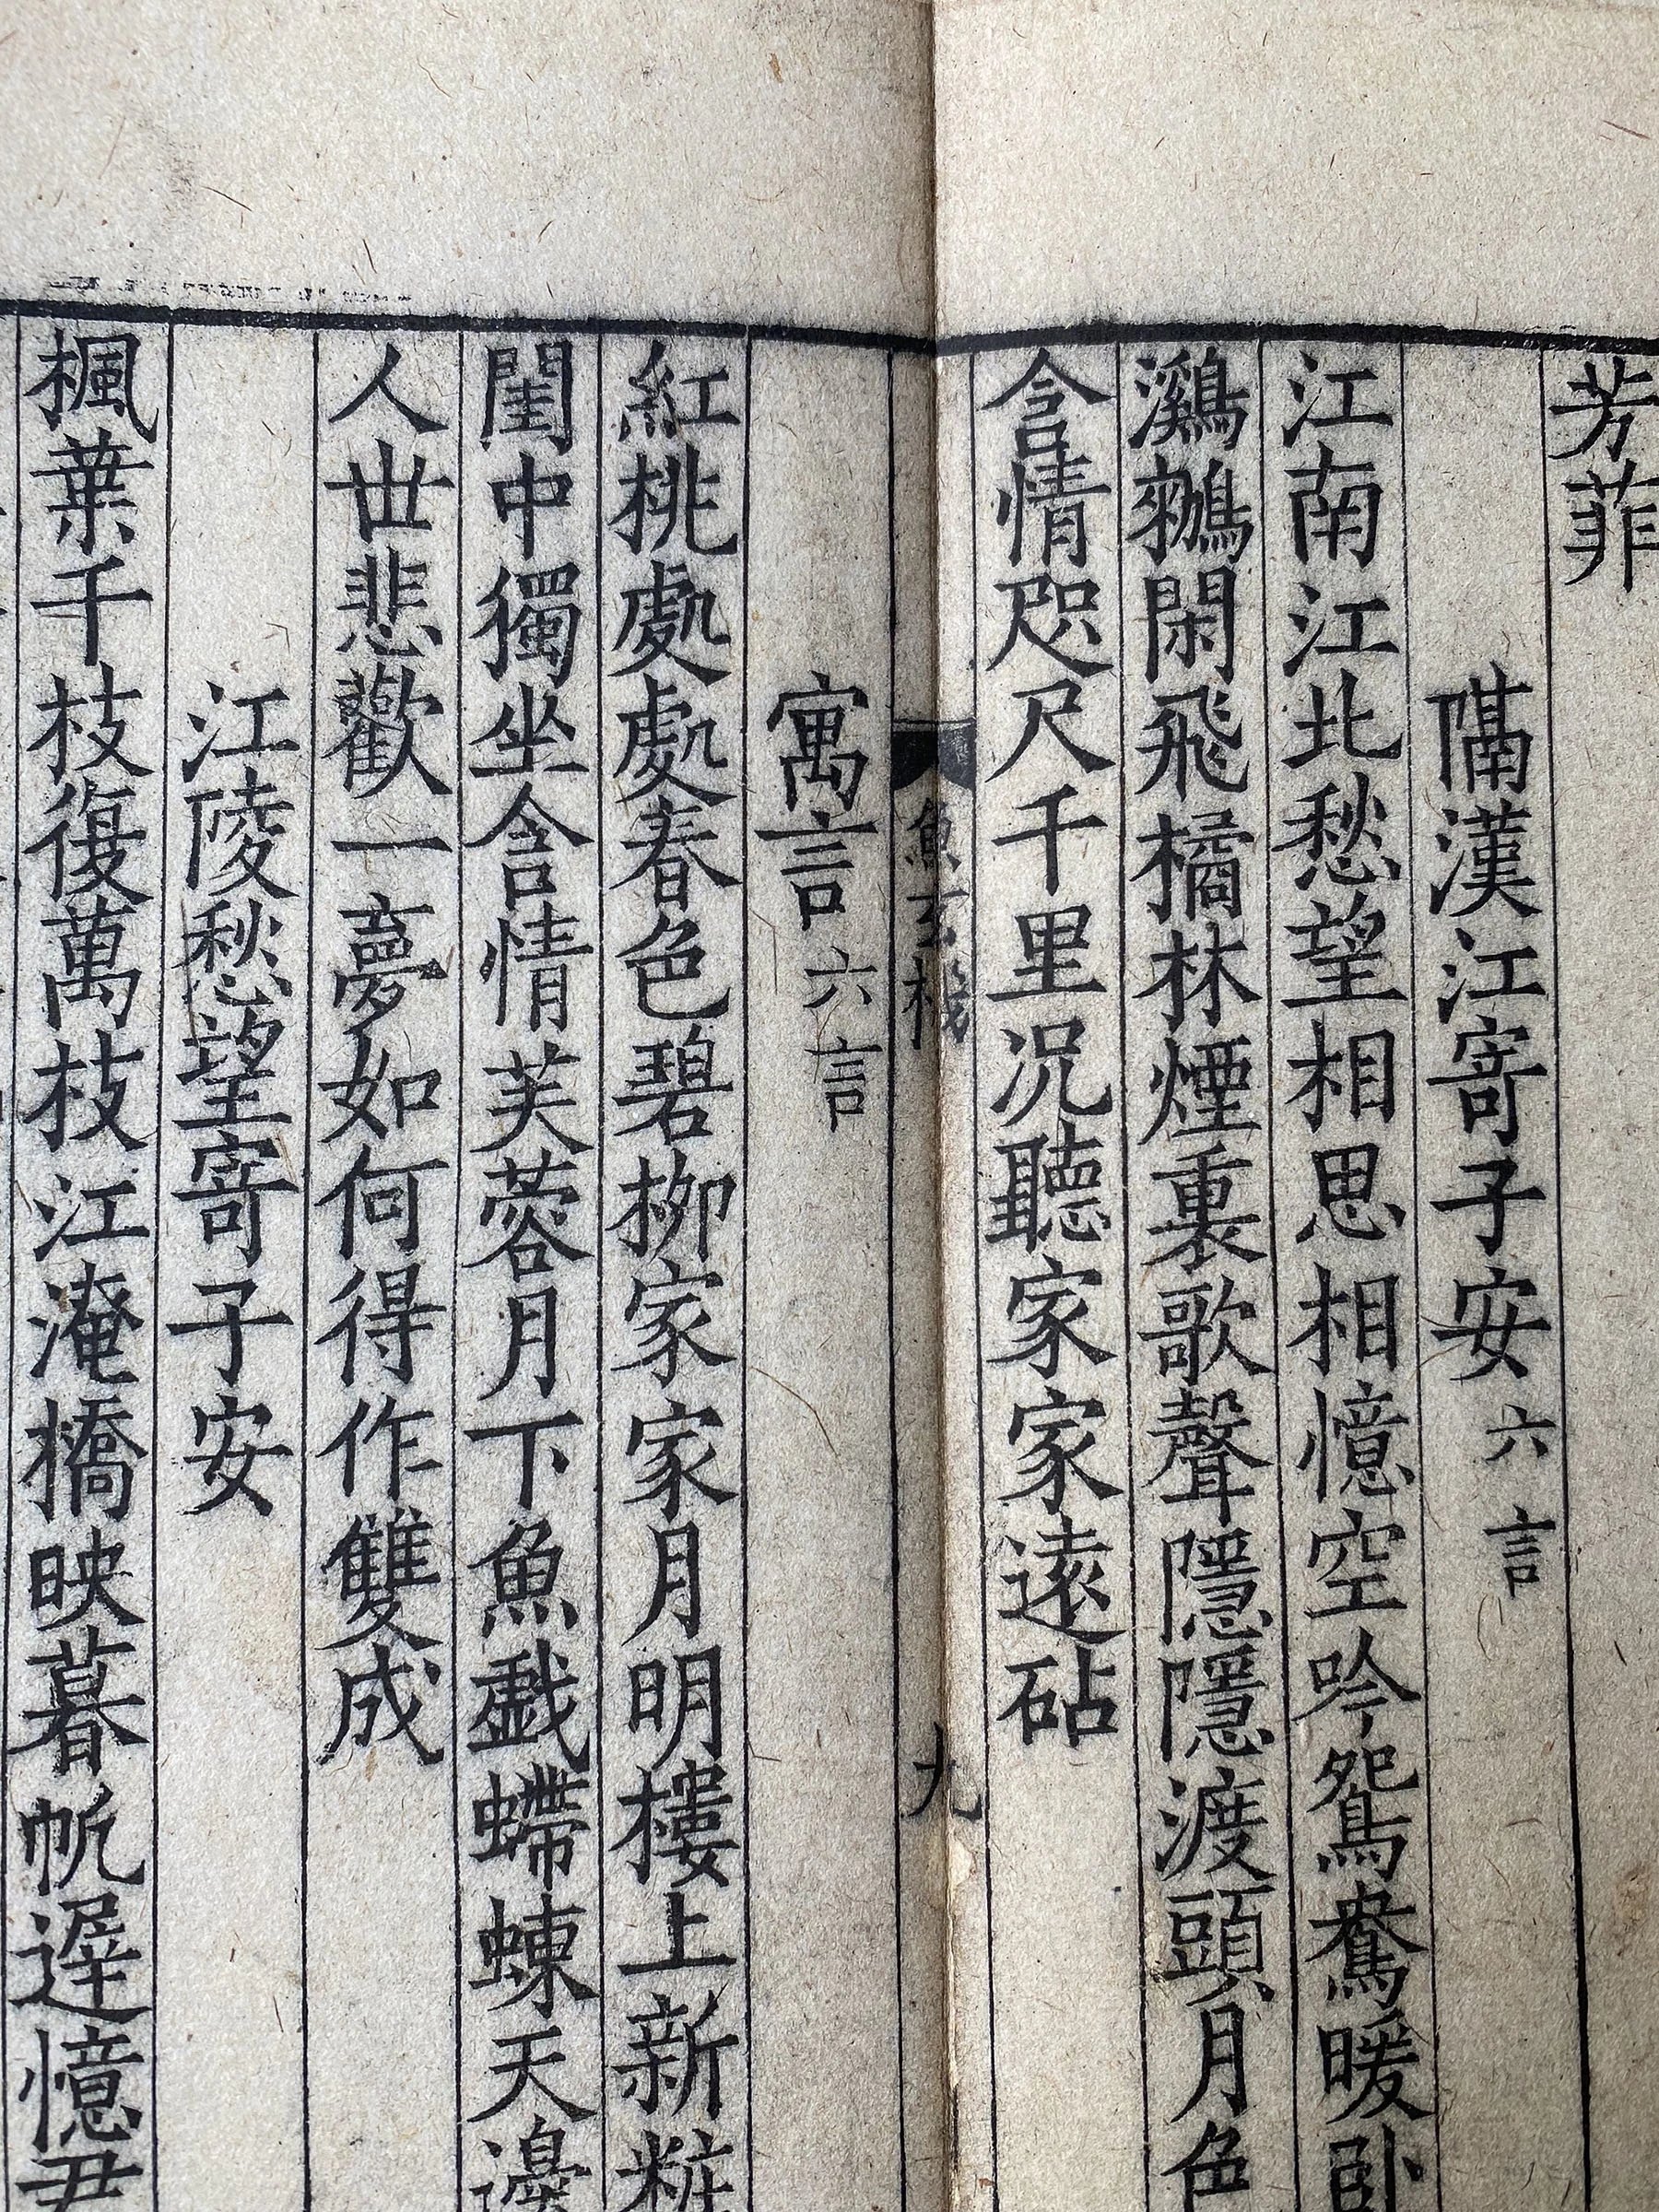 芳菲
隔漢江寄子安六言
江南江北愁望相思相憶空吟鴛鴦暖卧
鸂鶒閑飛橘林煙裏歌聲隱隱渡頭月色
含情咫尺千里况聽家家遠砧
魚玄機
九
寓言六言
紅桃處處春色碧栁家家月明樓上新粧
閨中獨坐含情芙蓉月下魚戲螮蝀天邊
人世悲歡一夢如何得作雙成
江陵愁望寄子安
楓葉千枝復萬枝江淹橋映暮帆遲憶君